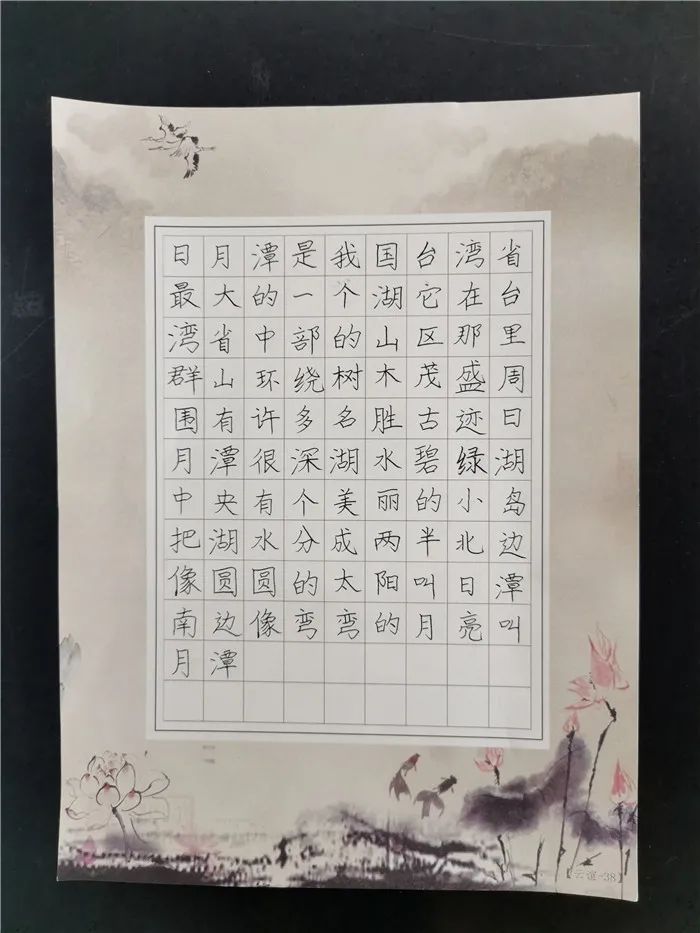 日月潭是我国台湾省
最大的一个湖它在台
湾省中部的山区那里
群山环绕树木茂盛周
围有许多名胜古迹日
月潭很深湖水碧绿湖
中央有个美丽的小岛
把湖水分成两半北边
像圆圆的太阳叫日潭
南边像弯弯的月亮叫
月潭
【云谊-38】